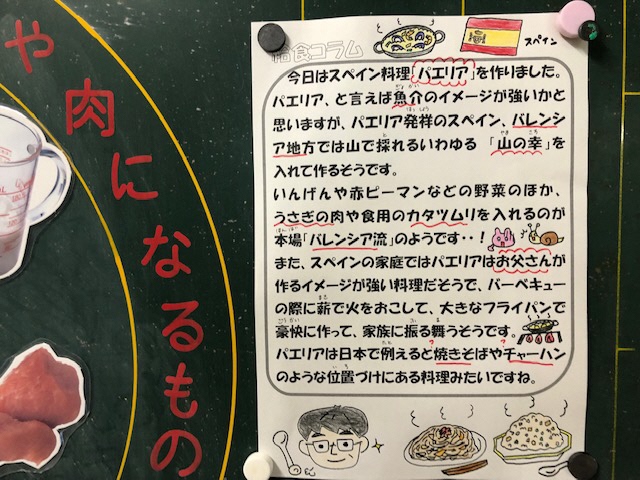 や肉になるもの
給食コラム
スペイン
今日はスペイン料理「パエリア」を作りました。
パエリア、と言えば魚介のイメージが強いかと
思いますが、パエリア発祥のスペイン、バレンシ
ア地方では山で採れるいわゆる 「山の幸」を
入れて作るそうです。
いんげんや赤ピーマンなどの野菜のほか、
うさぎの肉や食用のカタツムリを入れるのが
本場「バレンシア流」のようです・・！
また、スペインの家庭ではパエリアはお父さんが
作るイメージが強い料理だそうで、バーベキュー
の際に薪で火をおこして、大きなフライパンで
豪快に作って、家族に振る舞うそうです。
パエリアは日本で例えると焼きそばやチャーハン
のような位置づけにある料理みたいですね。